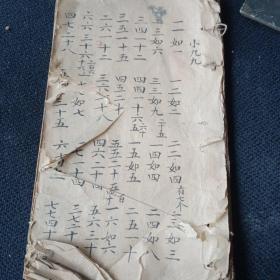 小九九
一一如一 一二如二 二二如四 一三如三
二三如六 三三如九 一四如四 二四如八
三四十二 四四十六 一五如五 二五一十
三五一十五 四五二十 五五二十五 一六如六
二六一十二 三六一十八 四六二十四 五六三十
六六三十六 一七如七 二七一十四 三七二十一
四七二十八 三十五 六 七七四十